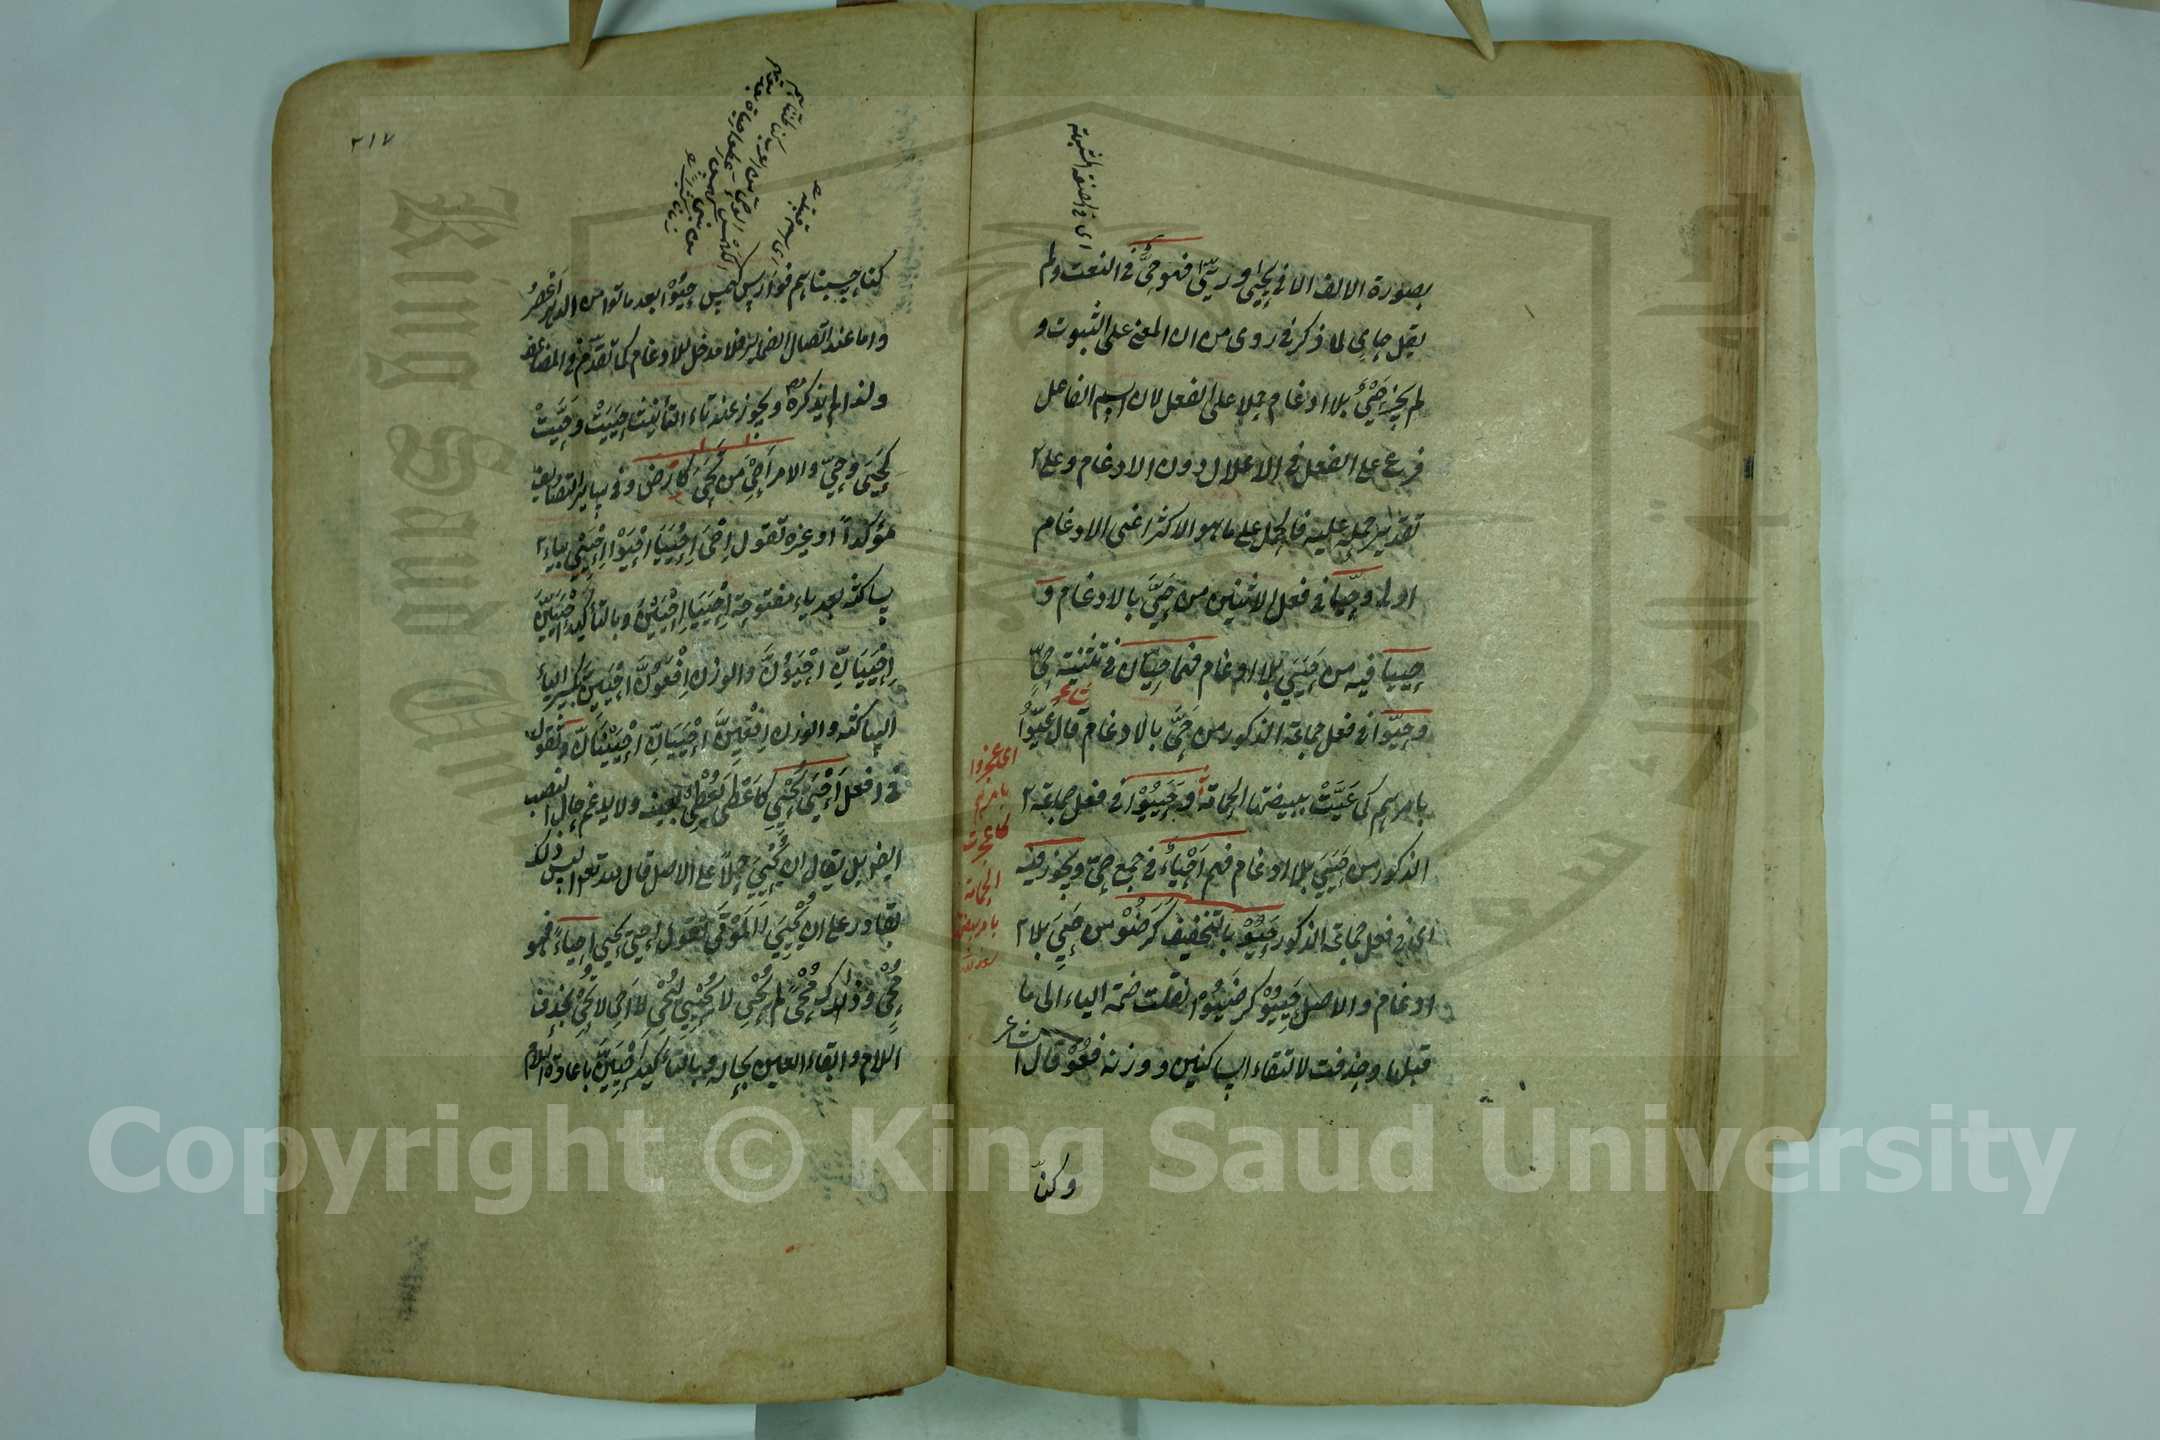 اى فى الصفة المشبهة
بصورة الالف الا فى يحيى وريّى فهو حىٌّ فى النعت ولم
يقل حاىٍ لما ذكر فى روى من ان المعنى على الثبوت و
لم يجز حَيِىٌ بلا ادغام حملا على الفعل لان اسم الفاعل
فرع على الفعل فى الاعلال دون الادغام وعلى
تقدير حمله عليه فالحمل على ما هو الاكثر اعنى الادغام
اولى وحيّا فى فعل الاثنين من حَيَّ بالادغام و
حييا فيه من حَيِيَ بلا ادغام فهما حيّان فى تثنية حىّ
وحيّوا فى فعل جماعة الذكور من حَيَّ بالادغام قال عَيّوا
شاعر
بامرهم كما عَيَّتْ ببيضتها الحمامة وحَيِيُوْا فى فعل جماعة
الذكور من حَيِيَ بلا ادغام فهم اَحْياءٌ فى جمع حىّ ويجوز فيه
اى فى فعل جماعة الذكور حَيُوْا بالتخفيف كَرَضُوْا من حَيِيَ بلا
ادغام والاصل حَيِيُوْا كرضيوا نقلت ضمة الياء الى ما
قبلها وحذفت لالتقاء الساكنين ووزنه فَعُوْا قال الشاعر
اى عجزوا
بامرهم
كما عجزت
الحمامة
بامر بيضتها
وكنّا
٢١٧
كنا حسبناهم فوارس كهمس حَيُوْا بعد ماتوا من الدهر اعصرُ
واما عند اتصال الضمائر فلا مدخل للادغام كما تقدم فى المضاعف
ولذا لم يذكره ويجوز عند تاء التأنيث حَيِيَتْ وحَيَّتْ
كحَيِىَ وحَىَّ والامر اِحْىَ من تَحْيَى كارض وفى سائر التصاريف
مؤكداً او غيره تقول اِحْىَ اِحْيَيَا اِحْيَوْا اِحْيَىْ بياء
ساكنة بعد ياء مفتوحة اِحْيَيَا اِحْيَيْنَ وبالتأكيد اِحْيَيَنَّ
اِحْيَيَانِّ اِحْيَوُنَّ والوزن اِفْعَوُنَّ اِحْيَيِنَّ بكسر الياء
الساكنة والوزن اِفْعَيِنَّ اِحْيَيَانِّ اِحْيَيْنَانِّ وتقول
فى افعل اَحْيَى يُحْيِى كاَعْطَى يُعْطِى بعينه ولا يدغم حال النصب
ايضا بل يقال ان يُحْيِىَ حملاً على الاصل قال الله تعالى اليس ذلك
بقادر على ان يُحْيِىَ الْمَوْتَى تقول احيى يحيى احياءً فهو
مُحْيٍ وذاك مُحْيًى لم يُحْيِ لا يُحْيِى لِيُحْيِ لا اَحْيِ لا تُحْيِ بحذف
اللام وابقاء العين بحاله وبالتأكيد اَحْيِيَنَّ باعادة اللام